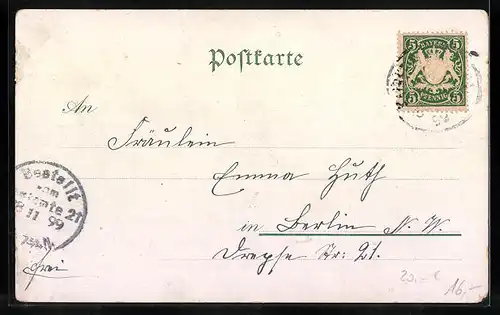 Postkarte
5 BAYERN 5
5 PFENNIG 5
An
Fräulein
Emma Huth
in Berlin N. W.
Dreyse Str: 21.
Bestellt
vom
Postamte 21
11 99
frei
20,- €
16,-